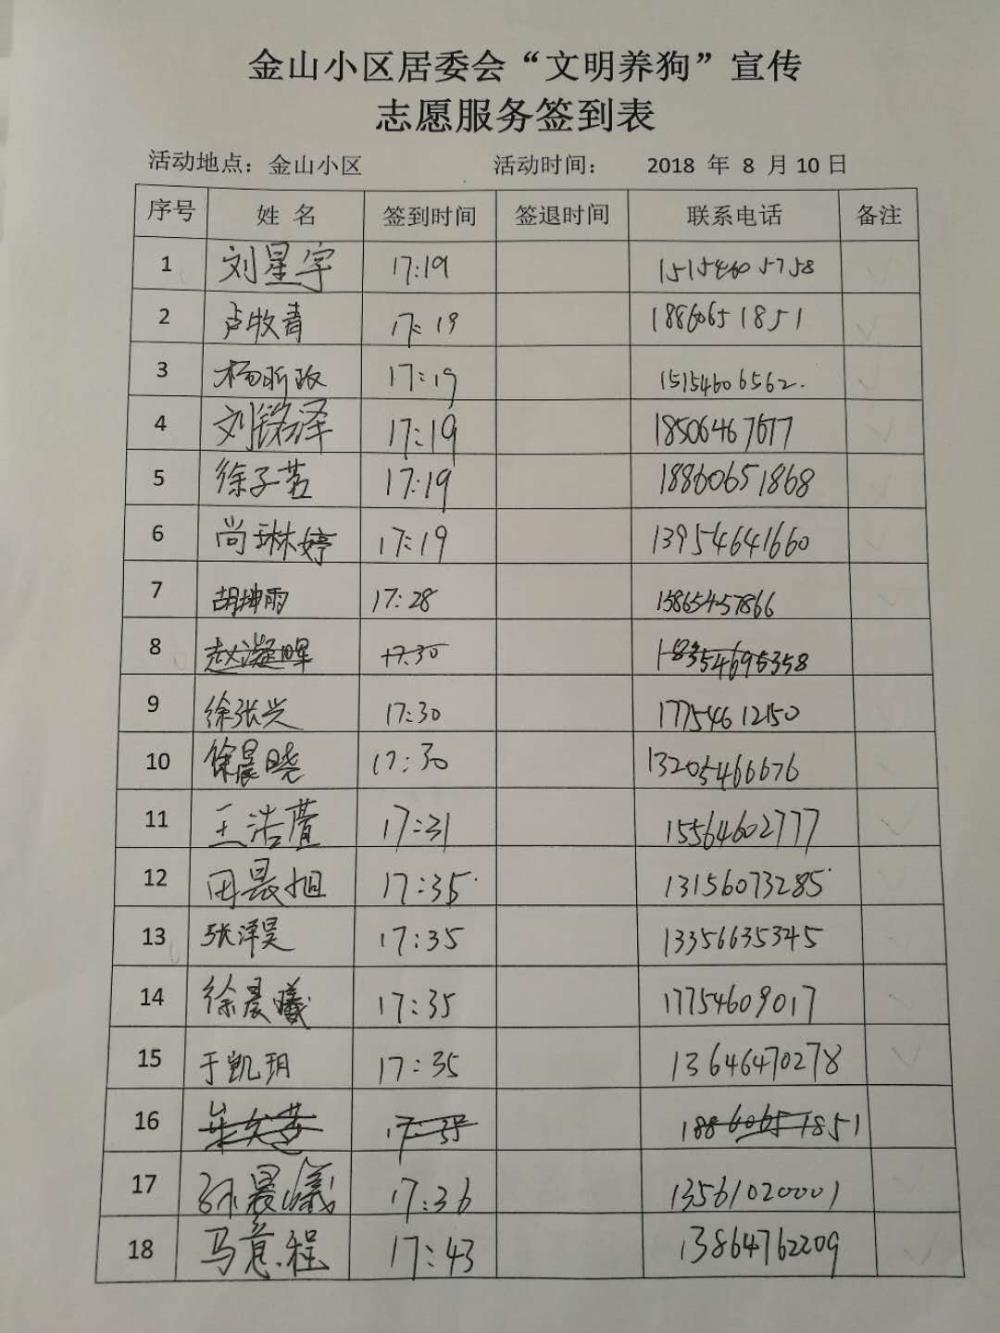 金山小区居委会“文明养狗”宣传
志愿服务签到表
活动地点：金山小区 活动时间： 2018 年 8 月 10 日
序号 姓 名 签到时间 签退时间 联系电话 备注
1 刘星宇 17:19 15154605758
2 卢牧青 17:19 18860651851
3 杨昕政 17:19 15154606562.
4 刘铭泽 17:19 18506467677
5 徐子茗 17:19 18860651868
6 尚琳婷 17:19 13954641660
7 胡坤雨 17:28 15865457866
8 赵凝晖 17:30 18354695358
9 徐张兴 17:30 17754612150
10 徐晨晓 17:30 13205466676
11 王浩萱 17:31 15564602777
12 田晨旭 17:35 13156073285
13 张泽昊 17:35 13356635345
14 徐晨曦 17:35 17754609017
15 于凯玥 17:35 13646470278
16 17:35 18860651851
17 孙晨曦 17:36 13561020001
18 马意程 17:43 13864762209